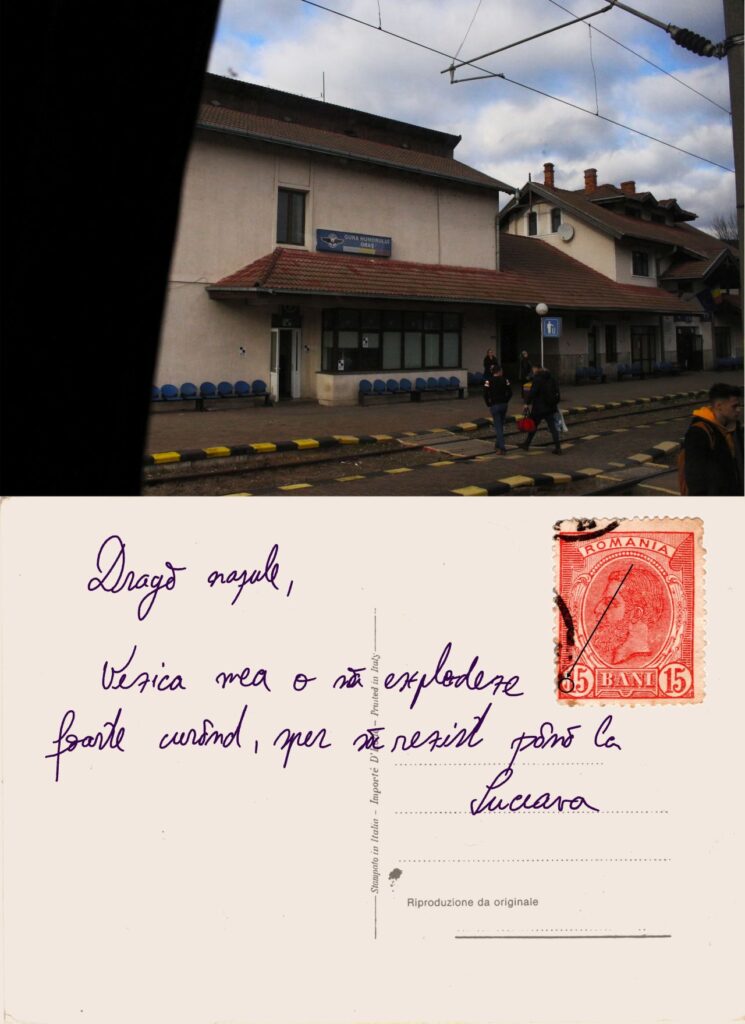 GURA HUMORULUI
ORAȘ
ROMANIA
15 BANI 15
Dragă nașule,
Vezica mea o să explodeze
foarte curând, sper să rezist până la
Suceava
Stampato in Italia - Importé D'Italie - Printed in Italy
Riproduzione da originale